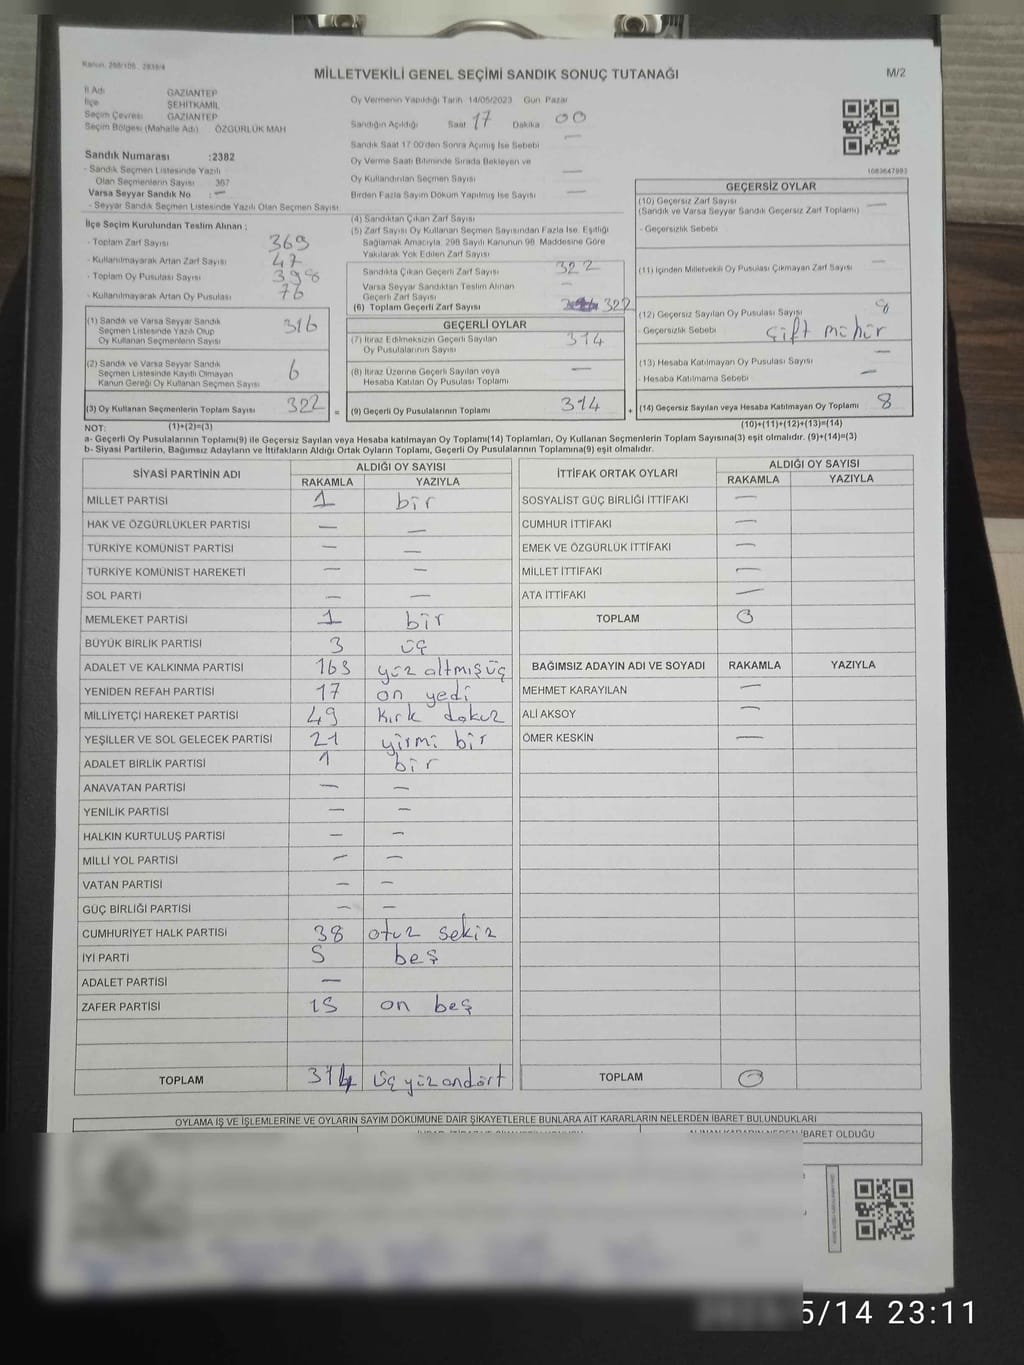 Kanun, 298/105 , 2839/4
MİLLETVEKİLİ GENEL SEÇİMİ SANDIK SONUÇ TUTANAĞI
M/2
İl Adı GAZİANTEP
İlçe ŞEHİTKAMİL
Seçim Çevresi GAZİANTEP
Seçim Bölgesi (Mahalle Adı) ÖZGÜRLÜK MAH
Sandık Numarası :2382
- Sandık Seçmen Listesinde Yazılı
Olan Seçmenlerin Sayısı 367
Varsa Seyyar Sandık No : —
- Seyyar Sandık Seçmen Listesinde Yazılı Olan Seçmen Sayısı
Oy Vermenin Yapıldığı Tarih 14/05/2023 Gün Pazar
Sandığın Açıldığı Saat 17 Dakika 00
Sandık Saat 17 00'den Sonra Açımış İse Sebebi —
Oy Verme Saati Bitiminde Sırada Bekleyen ve
Oy Kullandırılan Seçmen Sayısı —
Birden Fazla Sayım Döküm Yapılmış İse Sayısı —
1083647993
İlçe Seçim Kurulundan Teslim Alınan :
- Toplam Zarf Sayısı 369
- Kullanılmayarak Artan Zarf Sayısı 47
- Toplam Oy Pusulası Sayısı 398
- Kullanılmayarak Artan Oy Pusulası 76
(1) Sandık ve Varsa Seyyar Sandık
Seçmen Listesinde Yazılı Olup
Oy Kullanan Seçmenlerin Sayısı 316
(2) Sandık ve Varsa Seyyar Sandık
Seçmen Listesinde Kayıtlı Olmayan
Kanun Gereği Oy Kullanan Seçmen Sayısı 6
(3) Oy Kullanan Seçmenlerin Toplam Sayısı 322 =
(4) Sandıktan Çıkan Zarf Sayısı
(5) Zarf Sayısı Oy Kullanan Seçmen Sayısından Fazla İse, Eşitliği
Sağlamak Amacıyla, 298 Sayılı Kanunun 98. Maddesine Göre
Yakılarak Yok Edilen Zarf Sayısı
Sandıkta Çıkan Geçerli Zarf Sayısı 322
Varsa Seyyar Sandıktan Teslim Alınan
Geçerli Zarf Sayısı —
(6) Toplam Geçerli Zarf Sayısı 322
GEÇERLİ OYLAR
(7) İtiraz Edilmeksizin Geçerli Sayılan
Oy Pusulalarının Sayısı 314
(8) İtiraz Üzerine Geçerli Sayılan veya
Hesaba Katılan Oy Pusulası Toplamı —
(9) Geçerli Oy Pusulalarının Toplamı 314 +
GEÇERSİZ OYLAR
(10) Geçersiz Zarf Sayısı —
(Sandık ve Varsa Seyyar Sandık Geçersiz Zarf Toplamı)
- Geçersizlik Sebebi
(11) İçinden Milletvekili Oy Pusulası Çıkmayan Zarf Sayısı —
(12) Geçersiz Sayılan Oy Pusulası Sayısı 8
- Geçersizlik Sebebi Çift mühür
(13) Hesaba Katılmayan Oy Pusulası Sayısı —
- Hesaba Katılmama Sebebi —
(14) Geçersiz Sayılan veya Hesaba Katılmayan Oy Toplamı 8
NOT: (1)+(2)=(3) (10)+(11)+(12)+(13)=(14)
a- Geçerli Oy Pusulalarının Toplamı(9) ile Geçersiz Sayılan veya Hesaba katılmayan Oy Toplamı(14) Toplamları, Oy Kullanan Seçmenlerin Toplam Sayısına(3) eşit olmalıdır. (9)+(14)=(3)
b- Siyasi Partilerin, Bağımsız Adayların ve İttifakların Aldığı Ortak Oyların Toplamı, Geçerli Oy Pusulalarının Toplamına(9) eşit olmalıdır.
SİYASİ PARTİNİN ADI ALDIĞI OY SAYISI
RAKAMLA YAZIYLA
MİLLET PARTİSİ 1 bir
HAK VE ÖZGÜRLÜKLER PARTİSİ — —
TÜRKİYE KOMÜNİST PARTİSİ — —
TÜRKİYE KOMÜNİST HAREKETİ — —
SOL PARTİ — —
MEMLEKET PARTİSİ 1 bir
BÜYÜK BİRLİK PARTİSİ 3 üç
ADALET VE KALKINMA PARTİSİ 163 yüz altmışüç
YENİDEN REFAH PARTİSİ 17 on yedi
MİLLİYETÇİ HAREKET PARTİSİ 49 kırk dokuz
YEŞİLLER VE SOL GELECEK PARTİSİ 21 yirmi bir
ADALET BİRLİK PARTİSİ 1 bir
ANAVATAN PARTİSİ — —
YENİLİK PARTİSİ — —
HALKIN KURTULUŞ PARTİSİ — —
MİLLİ YOL PARTİSİ — —
VATAN PARTİSİ — —
GÜÇ BİRLİĞİ PARTİSİ — —
CUMHURİYET HALK PARTİSİ 38 otuz sekiz
İYİ PARTİ 5 beş
ADALET PARTİSİ —
ZAFER PARTİSİ 15 on beş
TOPLAM 314 üçyüzondört
İTTİFAK ORTAK OYLARI ALDIĞI OY SAYISI
RAKAMLA YAZIYLA
SOSYALİST GÜÇ BİRLİĞİ İTTİFAKI —
CUMHUR İTTİFAKI —
EMEK VE ÖZGÜRLÜK İTTİFAKI —
MİLLET İTTİFAKI —
ATA İTTİFAKI —
TOPLAM 0
BAĞIMSIZ ADAYIN ADI VE SOYADI RAKAMLA YAZIYLA
MEHMET KARAYILAN —
ALİ AKSOY —
ÖMER KESKİN —
TOPLAM 0
OYLAMA İŞ VE İŞLEMLERİNE VE OYLARIN SAYIM DÖKÜMÜNE DAİR ŞİKAYETLERLE BUNLARA AİT KARARLARIN NELERDEN İBARET BULUNDUKLARI
İBARET OLDUĞU
5/14 23:11